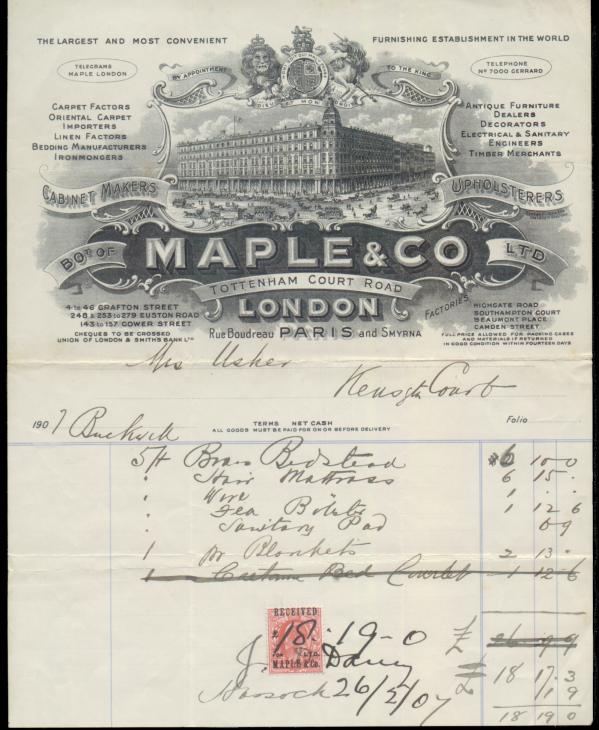 THE LARGEST AND MOST CONVENIENT FURNISHING ESTABLISHMENT IN THE WORLD
TELEGRAMS
MAPLE LONDON
BY APPOINTMENT
TO THE KING
TELEPHONE
No 7000 GERRARD
DIEU ET MON DROIT
CARPET FACTORS
ORIENTAL CARPET
IMPORTERS
LINEN FACTORS
BEDDING MANUFACTURERS
IRONMONGERS
ANTIQUE FURNITURE
DEALERS
DECORATORS
ELECTRICAL & SANITARY
ENGINEERS
TIMBER MERCHANTS
CABINET MAKERS
UPHOLSTERERS
BOT OF MAPLE & CO LTD
TOTTENHAM COURT ROAD
LONDON
Rue Boudreau PARIS and SMYRNA
4 to 46 GRAFTON STREET
248 & 253 to 279 EUSTON ROAD
143 to 157 GOWER STREET
CHEQUES TO BE CROSSED
UNION OF LONDON & SMITHS BANK LTD
FACTORIES
HIGHGATE ROAD
SOUTHAMPTON COURT
BEAUMONT PLACE
CAMDEN STREET
FULL PRICE ALLOWED FOR PACKING CASES
AND MATERIALS IF RETURNED
IN GOOD CONDITION WITHIN FOURTEEN DAYS
Mrs Usher
Court
1907 TERMS NETT CASH Folio
ALL GOODS MUST BE PAID FOR ON OR BEFORE DELIVERY
Brass Bedstead 6 10 0
Hair Mattress 6 15 -
Wire 1 - -
Fea Bolster 1 12 6
Sanitary Pad
1 pr Blankets 2 13 -
1 Bed 1 12 6
RECEIVED
£18. 19-0 £ 26 9 9
FOR LTD
MAPLE & Co.
£ 18 17. 3
26/2/07 1 9
18 19 0